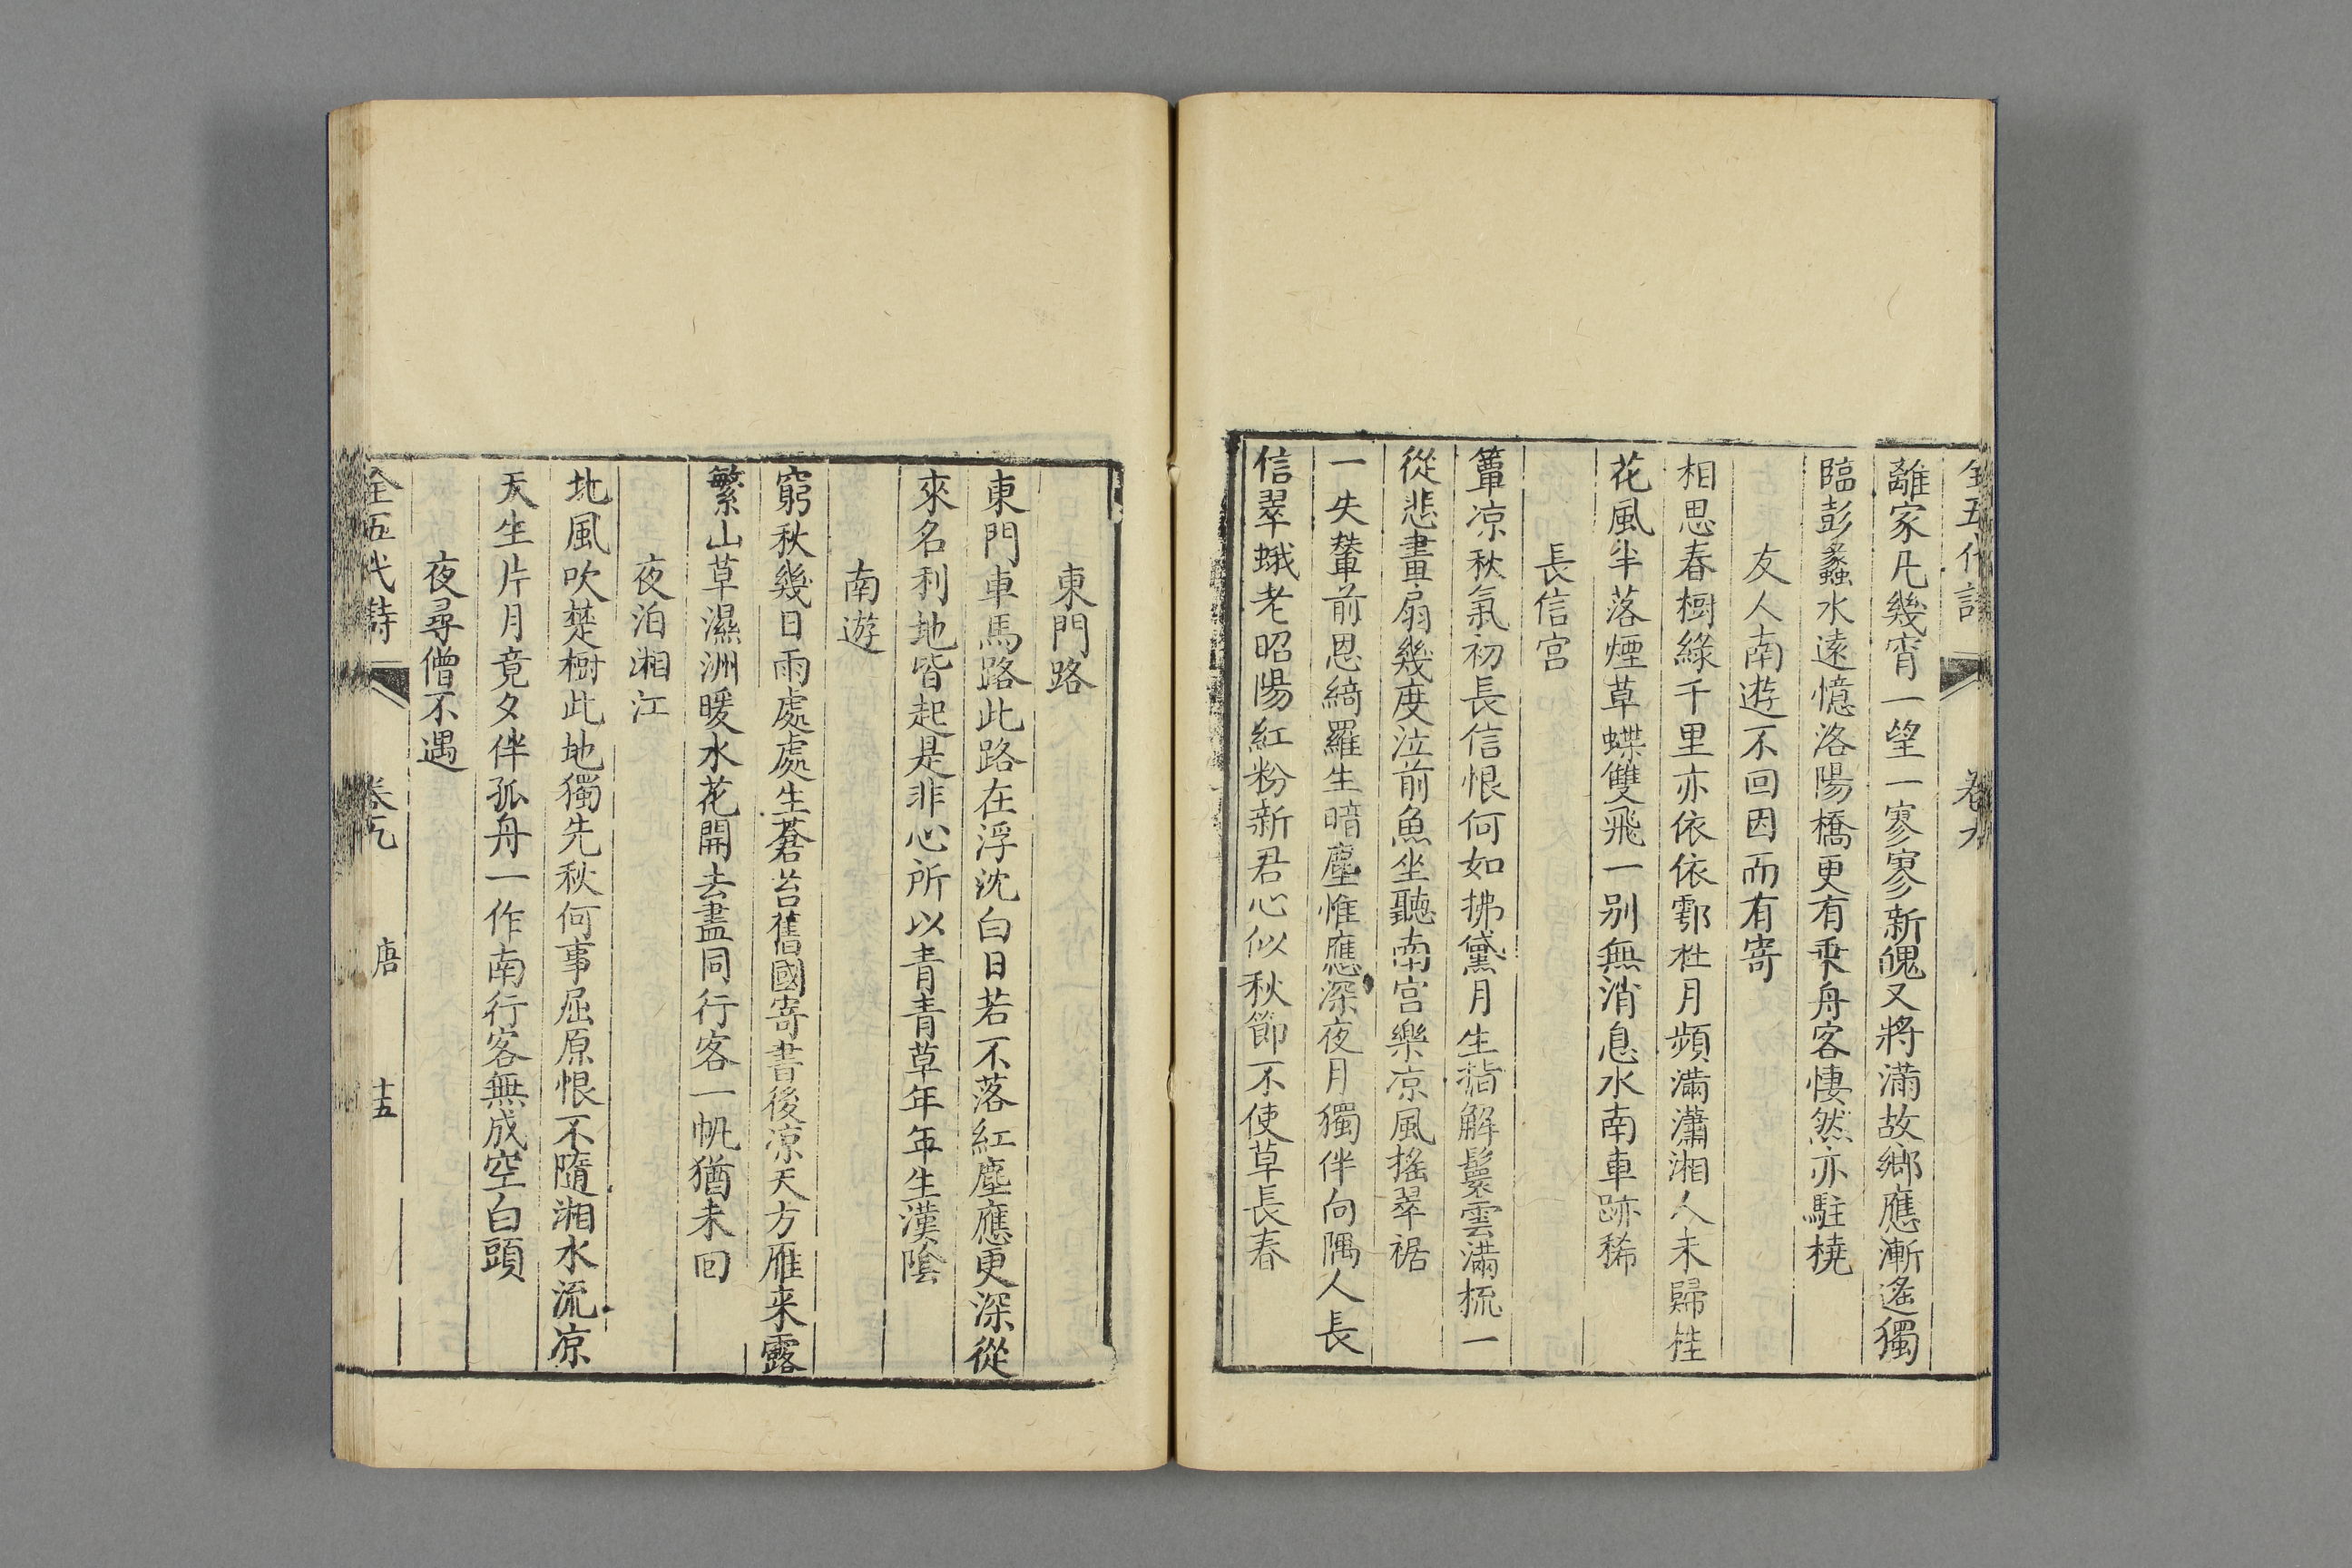 全五代詩 卷九
離家凡幾宵一望一寥寥新魄又將滿故鄉應漸遙獨
臨彭蠡水遠憶洛陽橋更有乘舟客悽然亦駐橈
友人南遊不回因而有寄
相思春樹綠千里亦依依鄠杜月頻滿瀟湘人未歸桂
花風半落煙草蝶雙飛一别無消息水南車跡稀
長信宮
簟凉秋氣初長信恨何如拂黛月生指解鬟雲滿梳一
從悲畫扇幾度泣前魚坐聽南宮樂凉風搖翠裾
一失輦前恩綺羅生暗塵惟應深夜月獨伴向隅人長
信翠蛾老昭陽紅粉新君心似秋節不使草長春
東門路
東門車馬路此路在浮沈白日若不落紅塵應更深從
來名利地皆起是非心所以青青草年年生漢陰
南遊
窮秋幾日雨處處生蒼苔舊國寄書後凉天方雁来露
繁山草濕洲暖水花開去盡同行客一帆猶未回
夜泊湘江
地風吹楚樹此地獨先秋何事屈原恨不隨湘水流凉
天生片月竟夕伴孤舟一作南行客無成空白頭
夜尋僧不遇
全五代詩 卷九 唐 十五